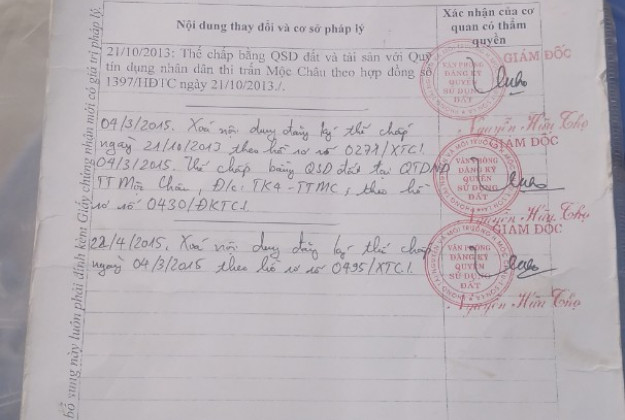 Nội dung thay đổi và cơ sở pháp lý
Xác nhận của cơ
quan có thẩm
quyền
21/10/2013: Thế chấp bằng QSD đất và tài sản với Quỹ
tín dụng nhân dân thi trấn Mộc Châu theo hợp đồng số
1397/HĐTC ngày 21/10/2013./.
GIÁM ĐỐC
VĂN PHÒNG
ĐĂNG KÝ
QUYỀN
SỬ DỤNG
ĐẤT
Nguyễn Hữu Thọ
04/3/2015. Xoá nội dung đăng ký thế chấp
ngày 21/10/2013 theo hồ sơ số 0278/XTC.
04/3/2015. Thế chấp bằng QSD đất tại QTDND
TT Mộc Châu, Đ/c: TK4-TTMC, theo hồ
sơ số 0430/ĐKTC.
GIÁM ĐỐC
VĂN PHÒNG
ĐĂNG KÝ
QUYỀN
SỬ DỤNG
ĐẤT
Nguyễn Hữu Thọ
22/4/2015. Xoá nội dung đăng ký thế chấp
ngày 04/3/2015 theo hồ sơ số 0495/XTC.
GIÁM ĐỐC
VĂN PHÒNG
ĐĂNG KÝ
QUYỀN
SỬ DỤNG
ĐẤT
Nguyễn Hữu Thọ
bổ sung này luôn phải đính kèm Giấy chứng nhận mới có giá trị pháp lý.